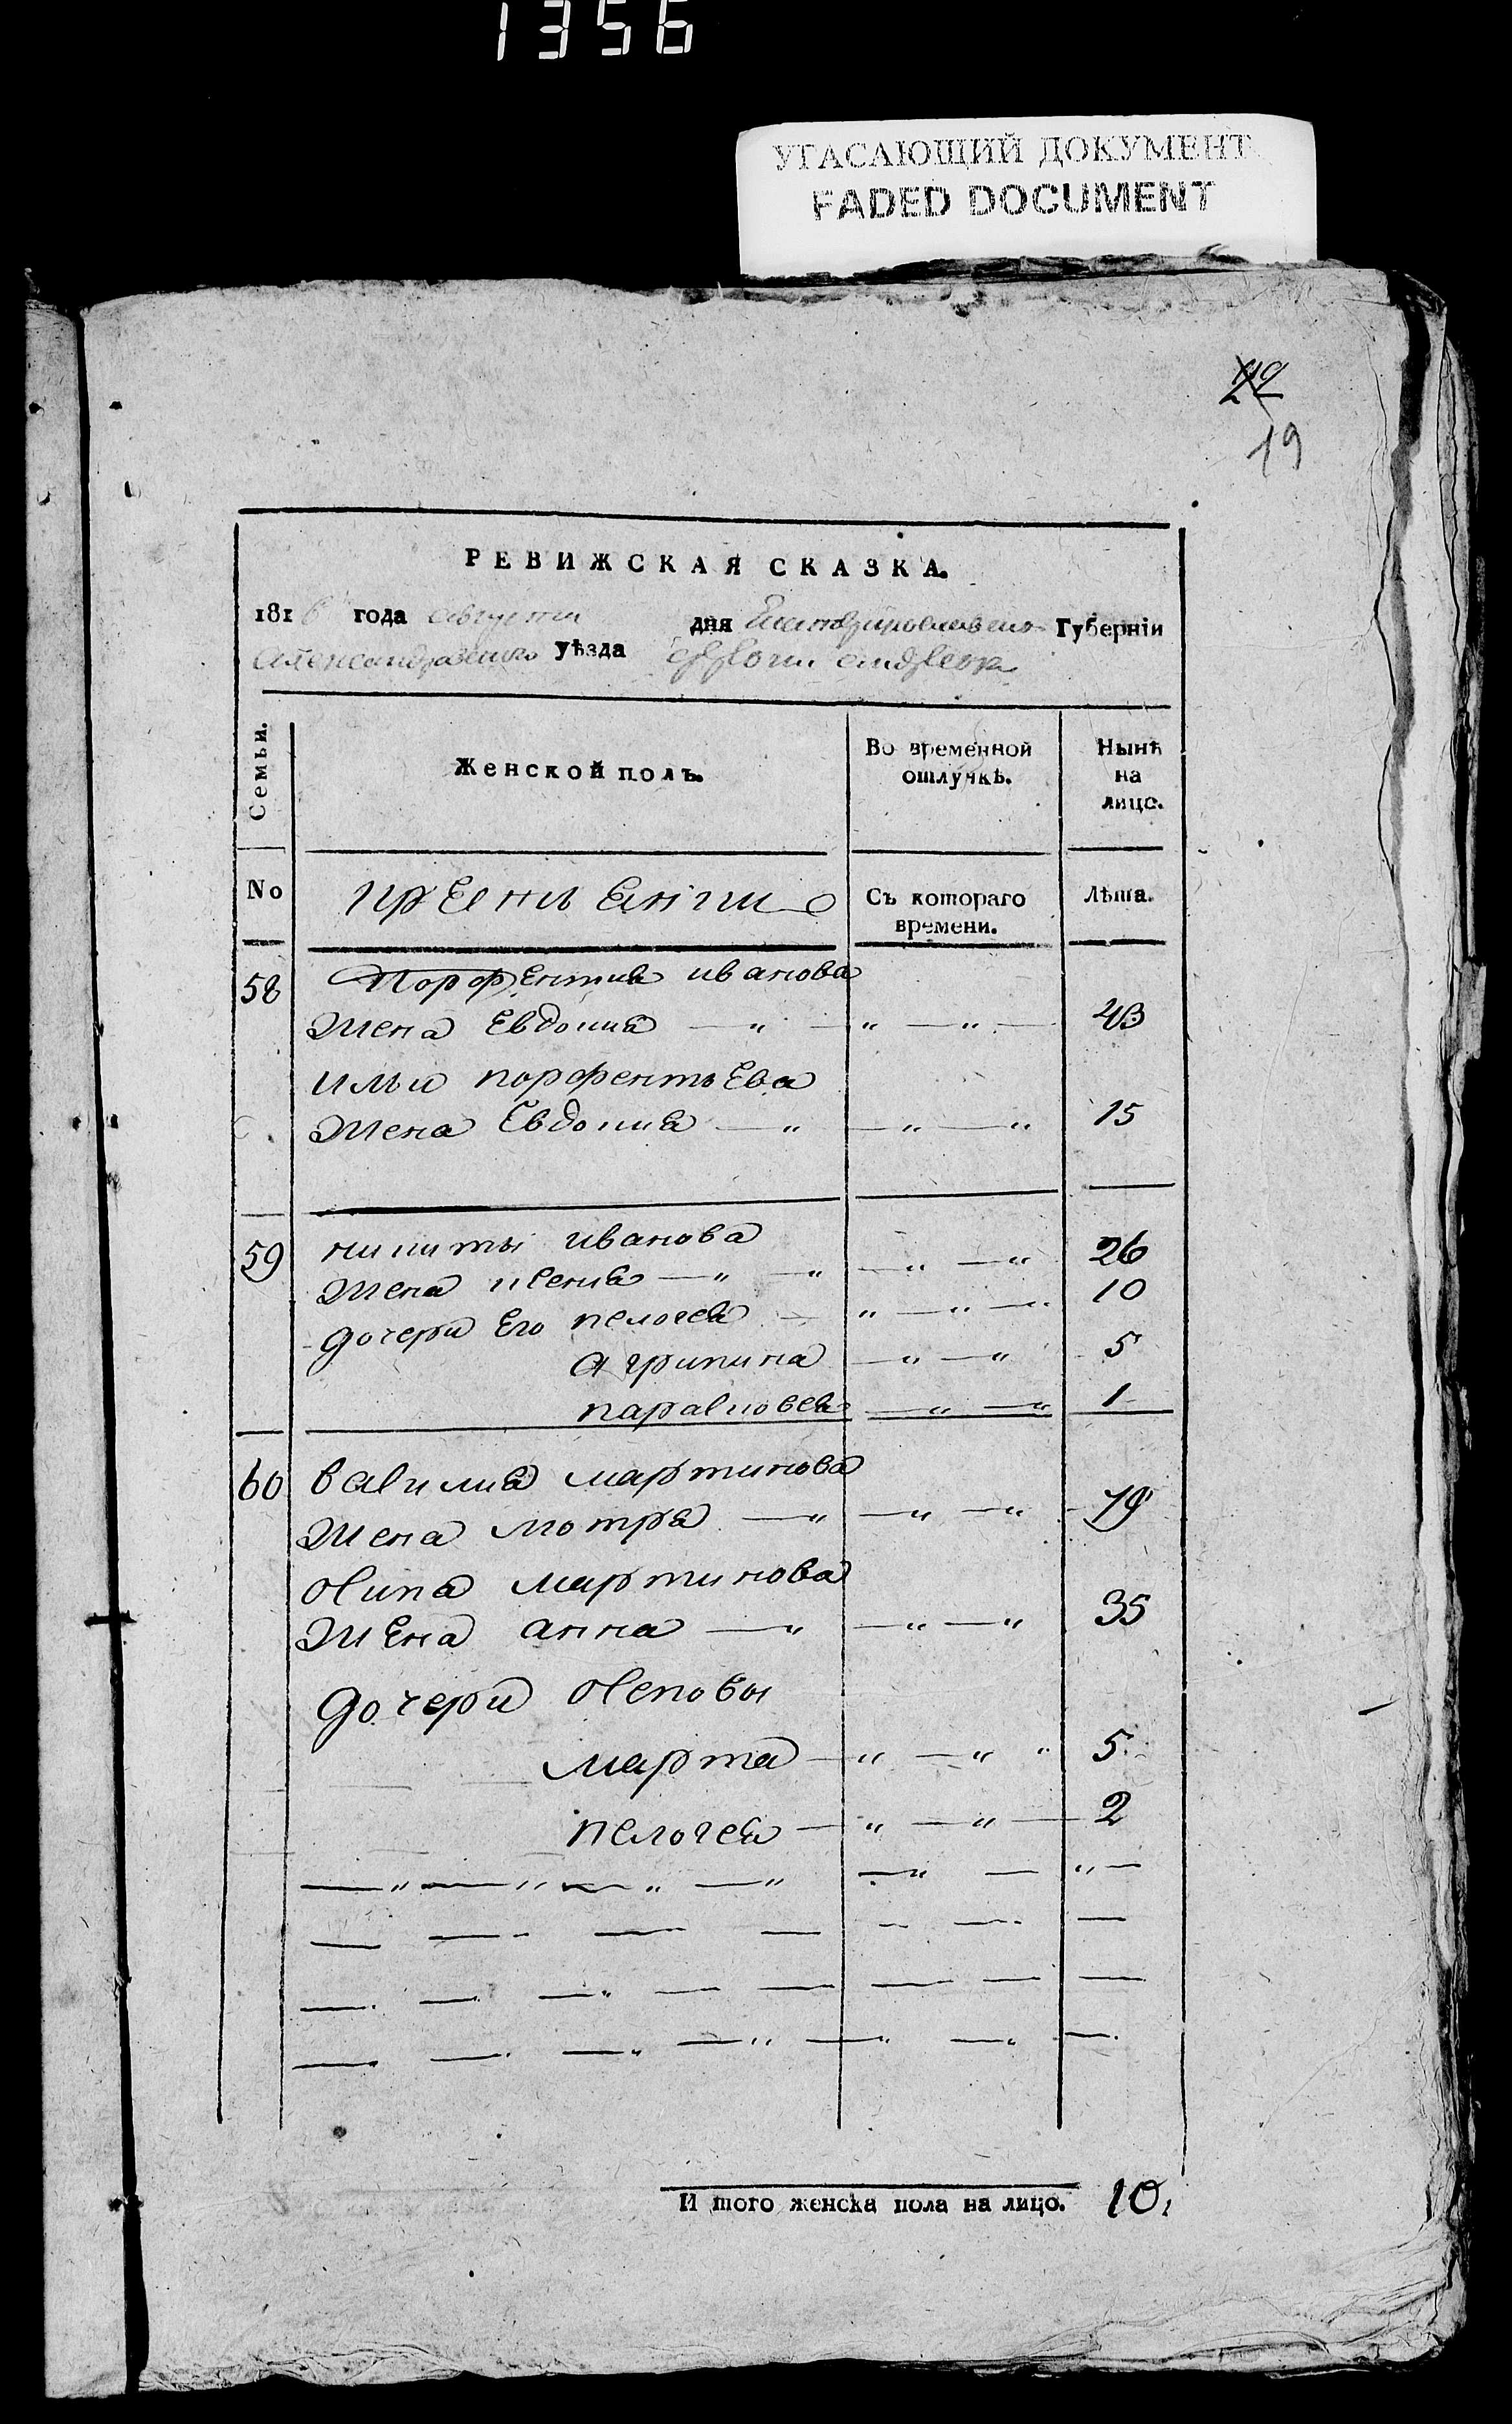 1356
УГАСАЮЩИЙ ДОКУМЕНТ
FADED DOCUMENT
22
19
РЕВИЖСКАЯ СКАЗКА.
1816 года августа дня Екатеринославской Губерніи
Александровскаго уѣзда
Семьи. Женской полъ. Во временной отлучкѣ. Нынѣ на лицо.
No крестьянѣ Съ котораго времени. Лѣта.
58 Порфентия иванова
Жена Евдокия — „ — „ — „ — 43
ильи порфентьева
Жена Евдокия — „ — „ — „ 15
59 никиты иванова
Жена ксения — „ — „ — „ — „ 26
дочери Его пелогея — „ — „ — „ 10
агрипина — „ — „ 5
парасковея — „ — „ 1
60 василия мартинова
Жена мотря — „ — „ — „ 79
осипа мартинова
Жена анна — „ — „ — „ 35
дочери осиповы
марта — „ — „ „ 5
пелогея — „ — „ — 2
И того женска пола на лицо. 10.